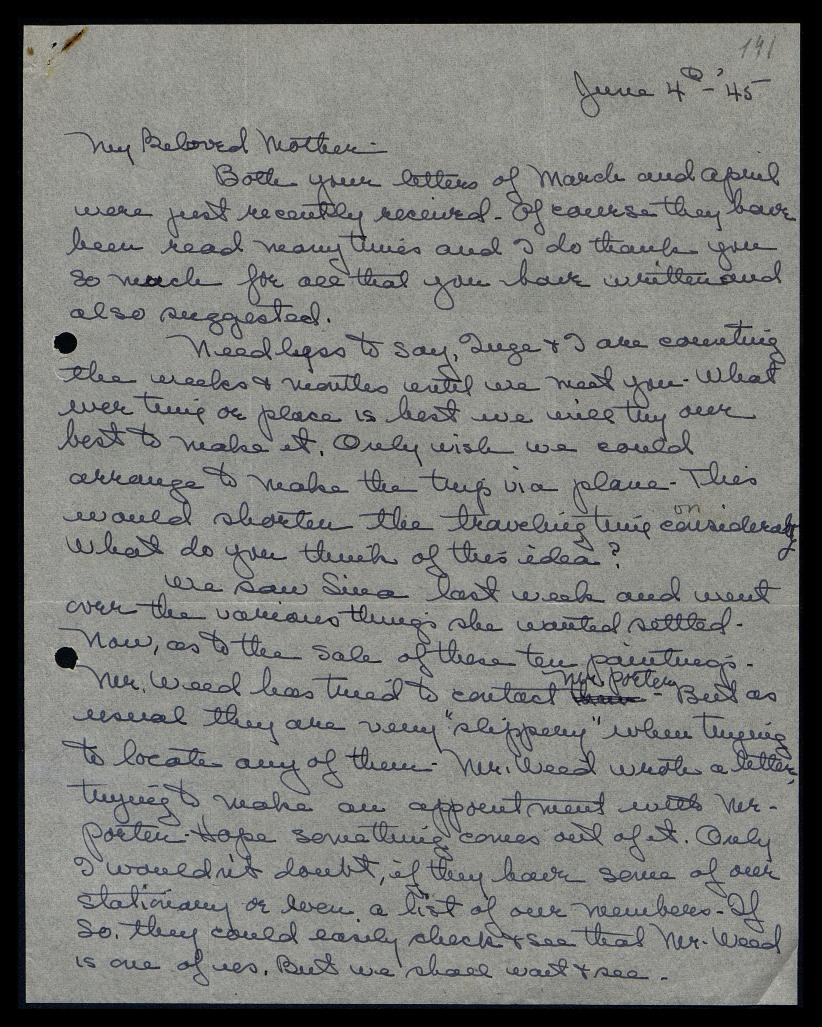 141
June 4th - '45
My Beloved Mother -
Both your letters of March and April
were just recently received. Of course they have
been read many times and I do thank you
so much for all that you have written and
also suggested.
Needless to say, Inge & I are counting
the weeks & months until we meet you. What
ever time or place is best we will try our
best to make it. Only wish we could
arrange to make the trip via plane - This
would shorten the traveling time considerably
on
What do you think of this idea?
We saw Sina last week and went
over the various things she wanted settled -
Now, as to the sale of these ten paintings -
Mr. Weed has tried to contact Mr Porter - But as
usual they are very "slippery" when trying
to locate any of them - Mr. Weed wrote a letter,
trying to make an appointment with Mr -
Porter - Hope something comes out of it. Only
I wouldn't doubt, if they have some of our
stationary or even a list of our members - If
so, they could easily check & see that Mr. Weed
is one of us. But we shall wait & see -